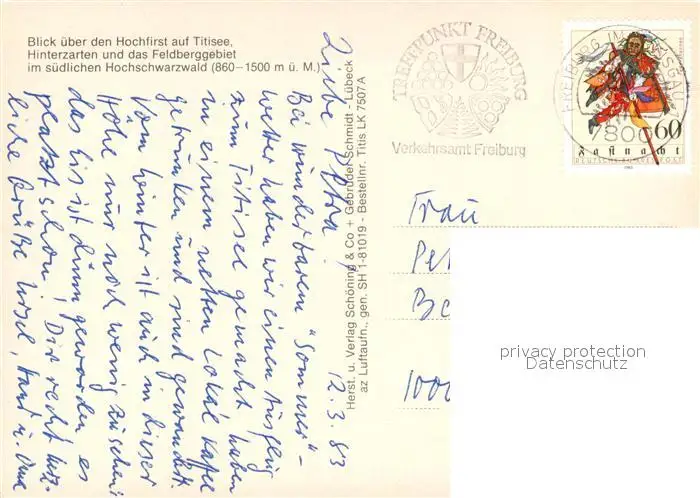 Blick über den Hochfirst auf Titisee,
Hinterzarten und das Feldberggebiet
im südlichen Hochschwarzwald (860–1500 m ü. M.)
Liebe Petra!
12.3.83
Bei wunderbarem "Sommer"-
wetter haben wir einen Ausflug
zum Titisee gemacht haben
in einem netten Lokal Kaffee
getrunken und sind gewandert.
Vom Winter ist auch in dieser
Höhe nur noch wenig zu sehen:
das Eis ist dünn geworden es
platzt schon! Dir recht herz-
liche Grüße Ursel, Hans u. Oma
Herst. u. Verlag Schöning & Co + Gebrüder Schmidt - Lübeck
az Luftaufn., gen. SH 1-81019 - Bestellnr. Titis LK 7507A
TREFFPUNKT FREIBURG
Verkehrsamt Freiburg
FREIBURG IM BREISGAU
7800
60
Fastnacht
DEUTSCHE BUNDESPOST
1983
Frau
Pet
Be
1000
privacy protection
Datenschutz